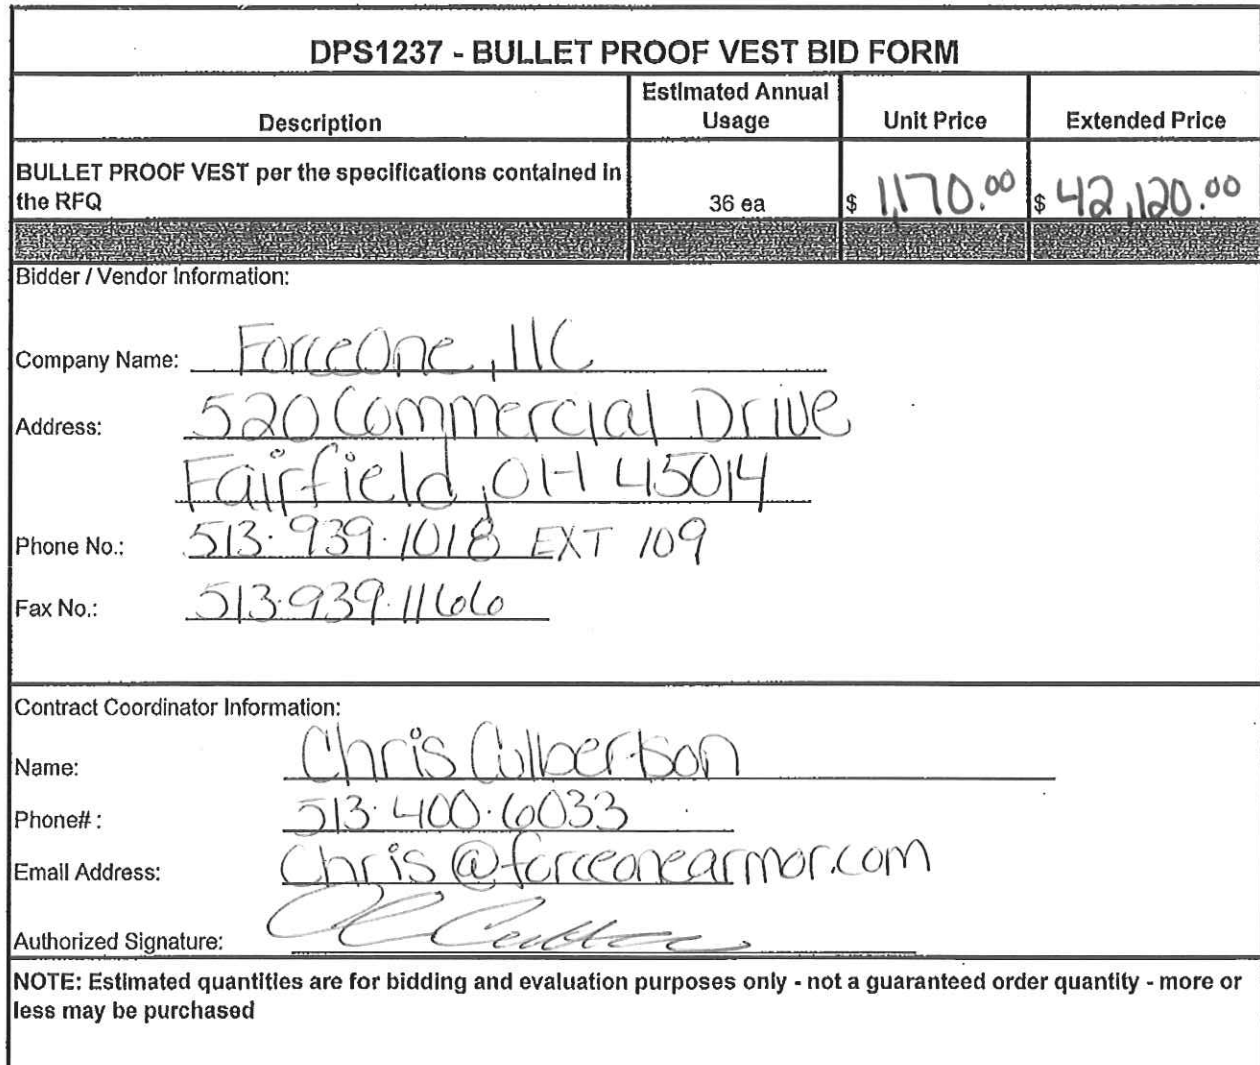 DPS1237 - BULLET PROOF VEST BID FORM
Description Estimated Annual Usage Unit Price Extended Price
BULLET PROOF VEST per the specifications contained in
the RFQ 36 ea $ 1,170.00 $ 42,120.00
Bidder / Vendor Information:
Company Name: ForceOne, LLC
Address: 520 Commercial Drive
Fairfield, OH 45014
Phone No.: 513.939.1018 EXT 109
Fax No.: 513.939.1166
Contract Coordinator Information:
Name: Chris Culbertson
Phone# : 513.400.6033
Email Address: Chris@forceonearmor.com
Authorized Signature:
NOTE: Estimated quantities are for bidding and evaluation purposes only - not a guaranteed order quantity - more or
less may be purchased